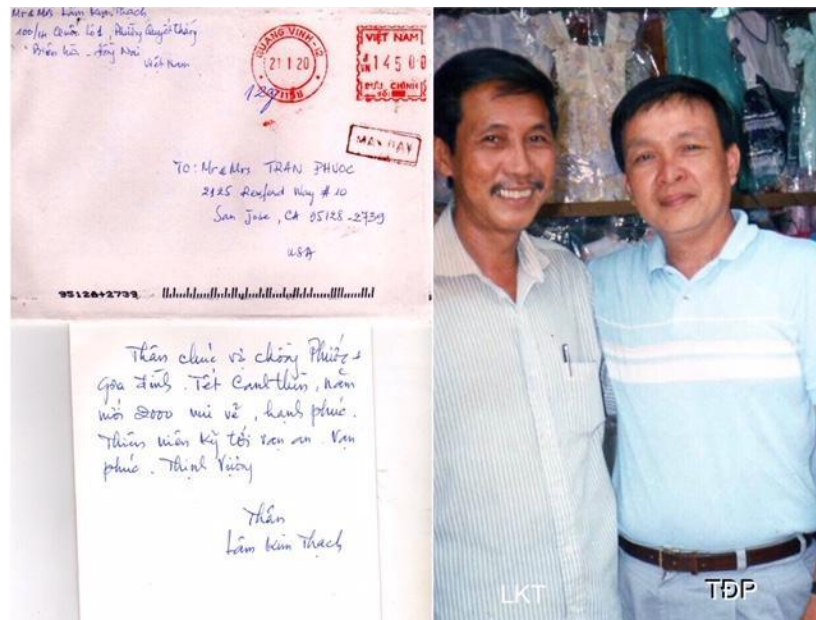 Mr & Mrs Lâm Kim Thạch
100/14 Quốc Lộ 1, Phường Quyết Thắng
Biên Hòa - Đồng Nai
Việt Nam
QUANG VINH-12
21.1.20
VIỆT NAM
14500
BƯU CHÍNH
12g
MAY BAY
TO: Mr & Mrs TRAN PHUOC
2125 Rexford Way # 10
San Jose, CA 95128-2739
USA
95128+2739
Thân chúc vợ chồng Phước +
Gia đình. Tết Canh thìn, năm
mới 2000 vui vẽ, hạnh phúc.
Thiên niên kỷ tới vạn an. Vạn
phúc. Thịnh Vượng
Thân
Lâm Kim Thạch
LKT
TĐP